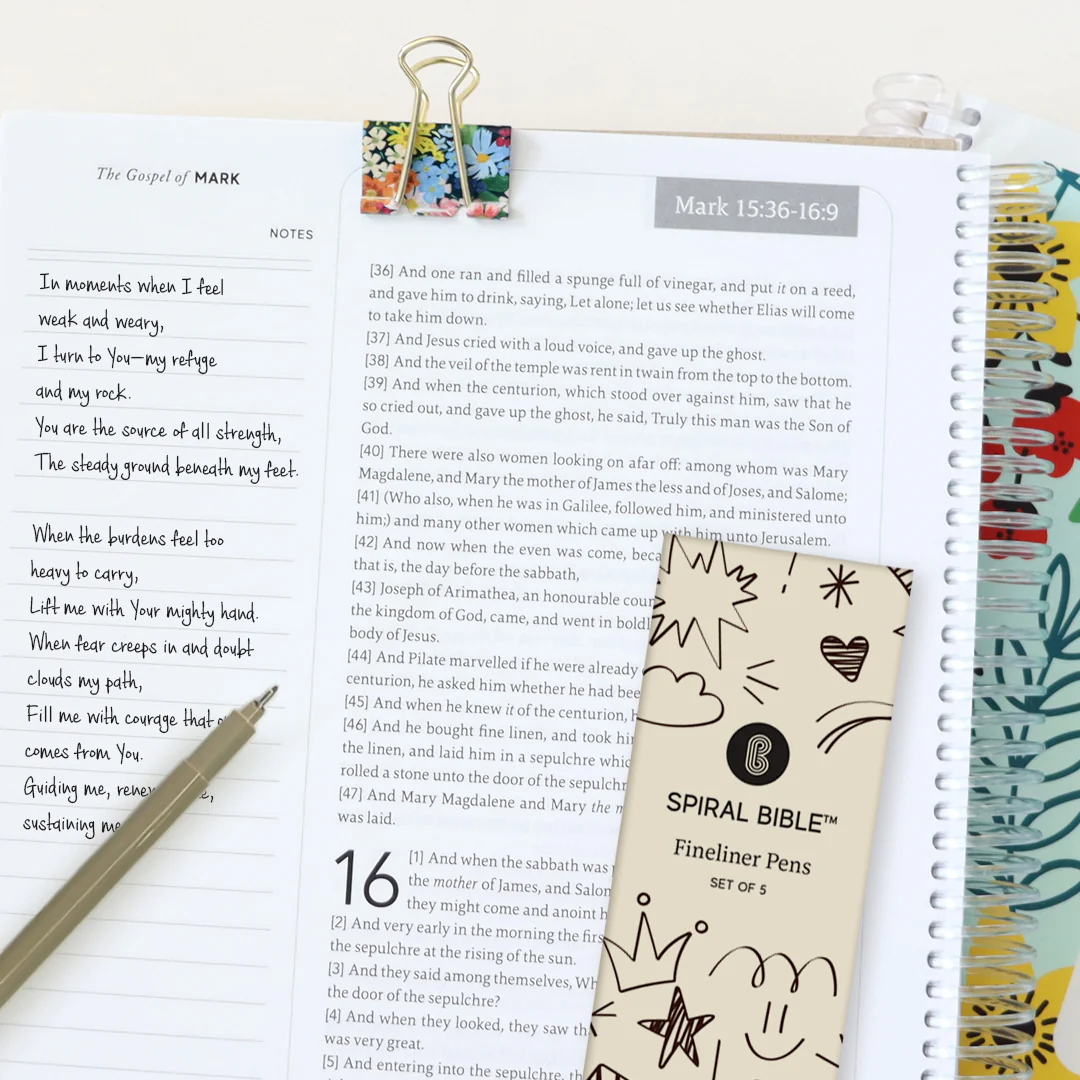 The Gospel of MARK
NOTES
In moments when I feel
weak and weary,
I turn to You—my refuge
and my rock.
You are the source of all strength,
The steady ground beneath my feet.
When the burdens feel too
heavy to carry,
Lift me with Your mighty hand.
When fear creeps in and doubt
clouds my path,
Fill me with courage that
comes from You.
Guiding me,
sustaining
Mark 15:36-16:9
[36] And one ran and filled a spunge full of vinegar, and put it on a reed,
and gave him to drink, saying, Let alone; let us see whether Elias will come
to take him down.
[37] And Jesus cried with a loud voice, and gave up the ghost.
[38] And the veil of the temple was rent in twain from the top to the bottom.
[39] And when the centurion, which stood over against him, saw that he
so cried out, and gave up the ghost, he said, Truly this man was the Son of
God.
[40] There were also women looking on afar off: among whom was Mary
Magdalene, and Mary the mother of James the less and of Joses, and Salome;
[41] (Who also, when he was in Galilee, followed him, and ministered unto
him;) and many other women which came up with him unto Jerusalem.
[42] And now when the even was come,
that is, the day before the sabbath,
[43] Joseph of Arimathea, an honourable
the kingdom of God, came, and went in
body of Jesus.
[44] And Pilate marvelled if he were already
centurion, he asked him whether he had
[45] And when he knew it of the centurion,
[46] And he bought fine linen, and took
the linen, and laid him in a sepulchre
rolled a stone unto the door of the
[47] And Mary Magdalene and Mary the
was laid.
16
[1] And when the sabbath was
the mother of James, and
they might come and anoint
[2] And very early in the morning the
the sepulchre at the rising of the sun.
[3] And they said among themselves,
the door of the sepulchre?
[4] And when they looked, they saw
was very great.
[5] And entering into the sepulchre,
B
SPIRAL BIBLE™
Fineliner Pens
SET OF 5